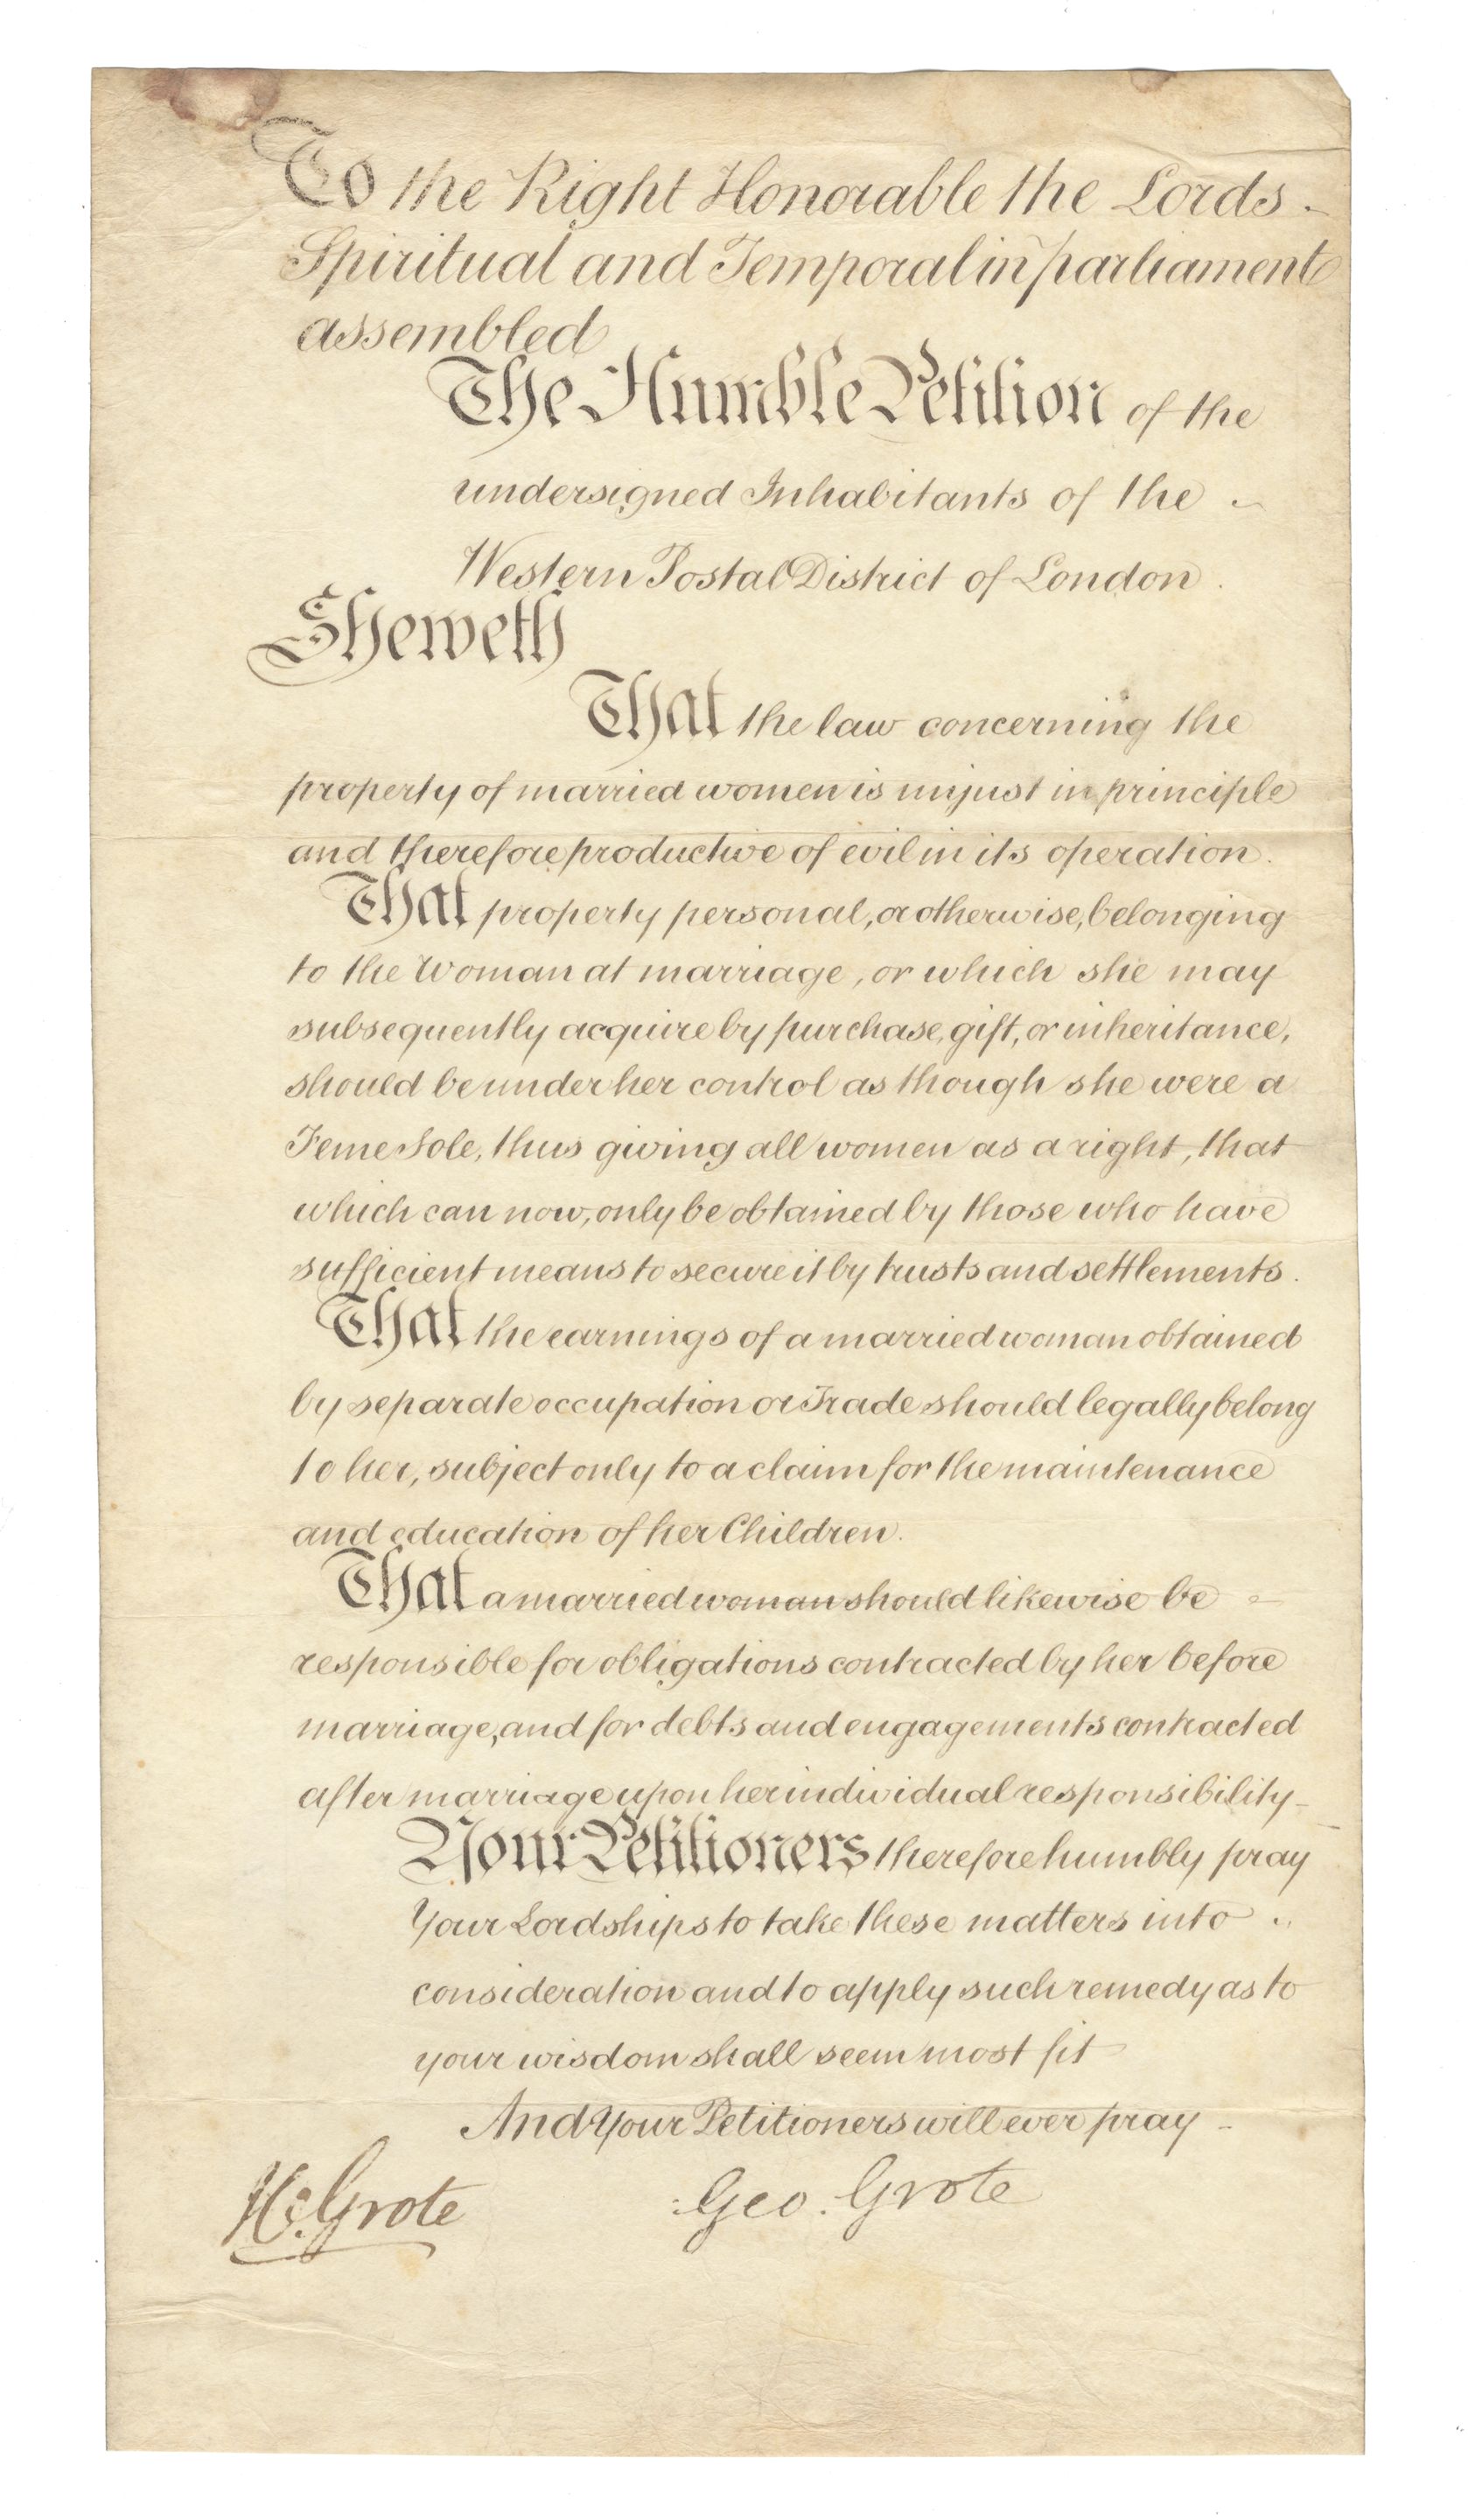 To the Right Honorable the Lords
Spiritual and Temporal in parliament
assembled
The Humble Petition of the
undersigned Inhabitants of the
Western Postal District of London.
Sheweth
That the law concerning the
property of married women is unjust in principle
and therefore productive of evil in its operation.
That property personal, or otherwise, belonging
to the Woman at marriage, or which she may
subsequently acquire by purchase, gift, or inheritance,
should be under her control as though she were a
Feme Sole, thus giving all women as a right, that
which can now, only be obtained by those who have
sufficient means to secure it by trusts and settlements.
That the earnings of a married woman obtained
by separate occupation or Trade should legally belong
to her, subject only to a claim for the maintenance
and education of her Children.
That a married woman should likewise be
responsible for obligations contracted by her before
marriage, and for debts and engagements contracted
after marriage upon her individual responsibility
Your Petitioners therefore humbly pray
Your Lordships to take these matters into
consideration and to apply such remedy as to
your wisdom shall seem most fit
And Your Petitioners will ever pray
H. Grote
Geo. Grote